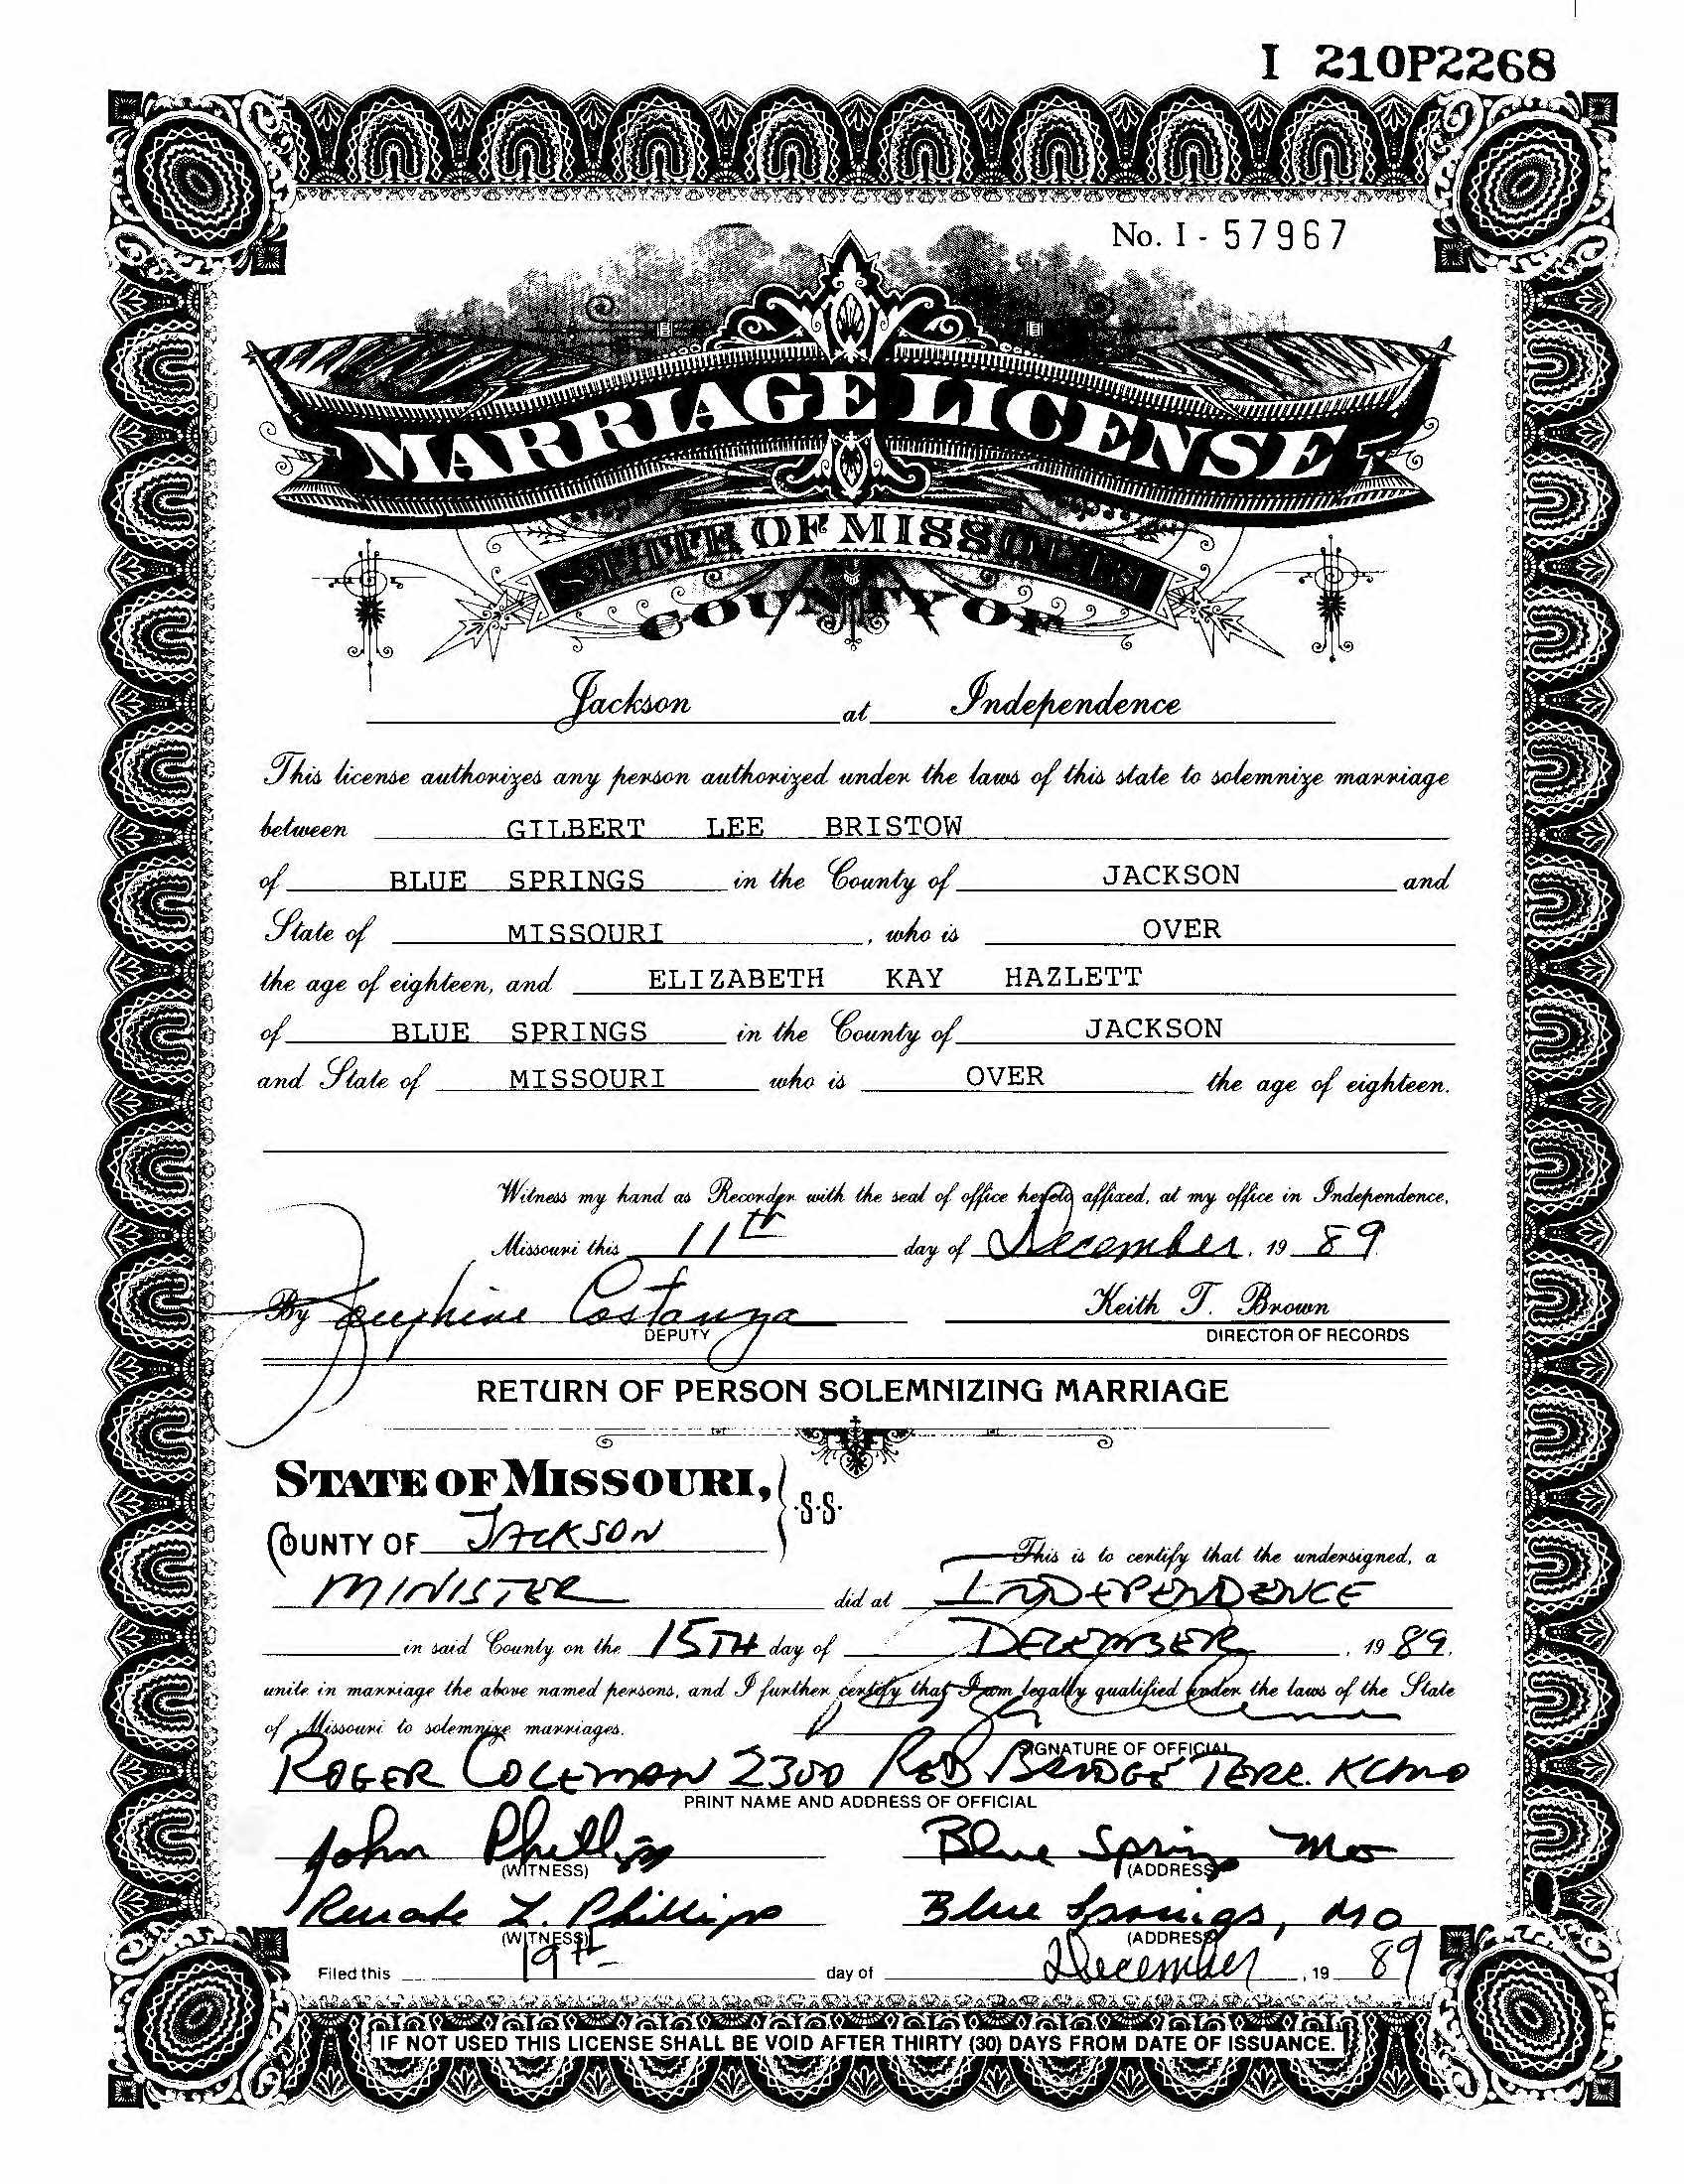 I 210P2268
No. I - 57967
MARRIAGE LICENSE
STATE OF MISSOURI
COUNTY OF
Jackson at Independence
This license authorizes any person authorized under the laws of this state to solemnize marriage
between GILBERT LEE BRISTOW
of BLUE SPRINGS in the County of JACKSON and
State of MISSOURI, who is OVER
the age of eighteen, and ELIZABETH KAY HAZLETT
of BLUE SPRINGS in the County of JACKSON
and State of MISSOURI who is OVER the age of eighteen.
Witness my hand as Recorder with the seal of office hereto affixed, at my office in Independence,
Missouri this 11th day of December, 19 89.
By Josephine Costanza Keith T. Brown
DEPUTY DIRECTOR OF RECORDS
RETURN OF PERSON SOLEMNIZING MARRIAGE
STATE OF MISSOURI, } S.S.
COUNTY OF JACKSON
This is to certify that the undersigned, a
MINISTER did at INDEPENDENCE
in said County on the 15TH day of DECEMBER, 19 89.
unite in marriage the above named persons, and I further certify that I am legally qualified under the laws of the State
of Missouri to solemnize marriages.
SIGNATURE OF OFFICIAL
ROGER COLEMAN 2300 RED BRIDGE TERR. KCMO
PRINT NAME AND ADDRESS OF OFFICIAL
John Phillips Blue Springs Mo
(WITNESS) (ADDRESS)
Renate L. Phillips Blue Springs, MO
(WITNESS) (ADDRESS)
Filed this 19th day of December, 19 89
IF NOT USED THIS LICENSE SHALL BE VOID AFTER THIRTY (30) DAYS FROM DATE OF ISSUANCE.